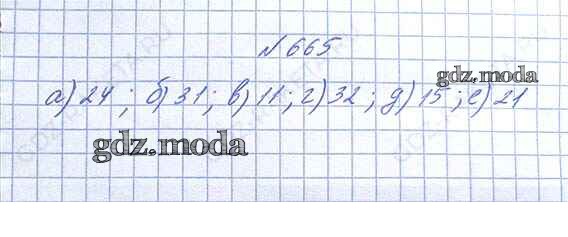 № 665
а) 24 ; б) 31; в) 11; г) 32 ; д) 15 ; е) 21
gdz.moda
gdz.moda